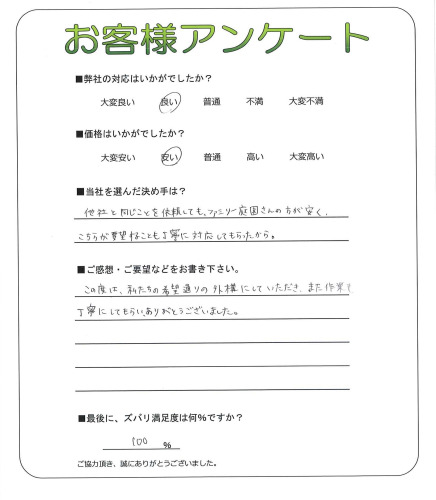 お客様アンケート
■弊社の対応はいかがでしたか？
大変良い 良い 普通 不満 大変不満
■価格はいかがでしたか？
大変安い 安い 普通 高い 大変高い
■当社を選んだ決め手は？
他社と同じことを依頼しても、ファミリー庭園さんの方が安く、
こちらが要望することも丁寧に対応してもらったから。
■ご感想・ご要望などをお書き下さい。
この度は、私たちの希望通りの外構にしていただき、また作業も
丁寧にしてもらいありがとうございました。
■最後に、ズバリ満足度は何%ですか？
100 %
ご協力頂き、誠にありがとうございました。